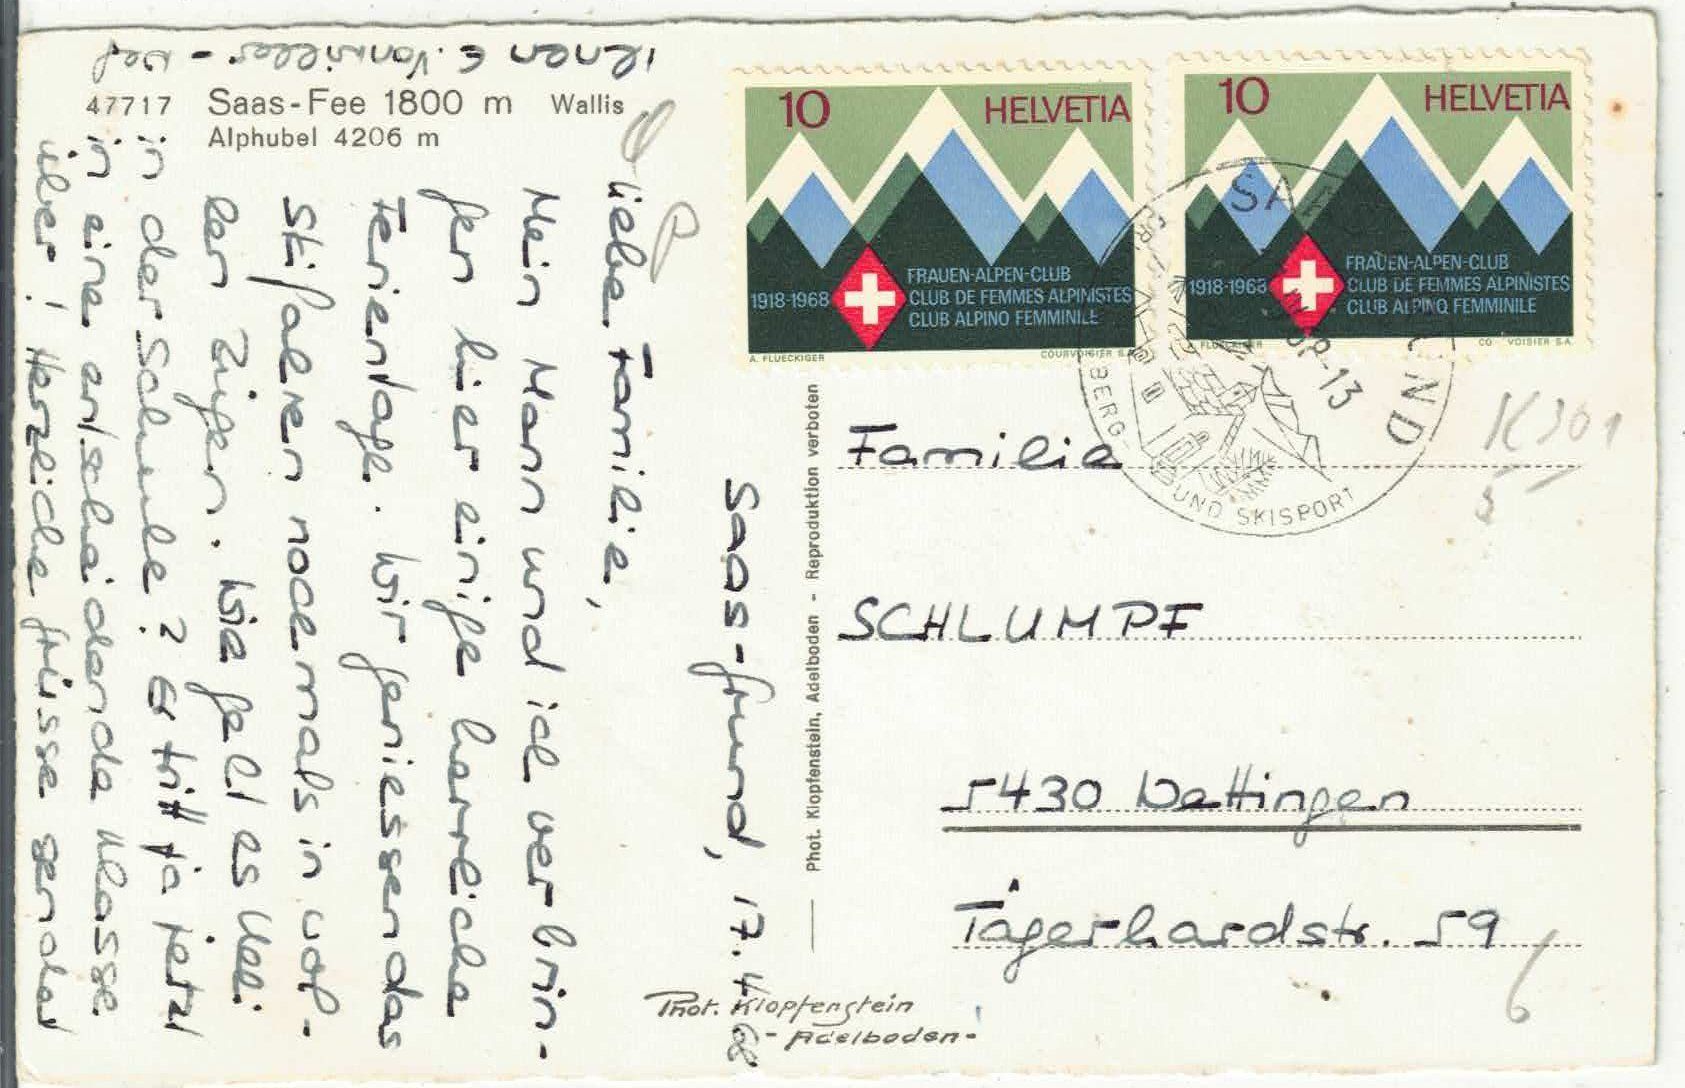 47717 Saas-Fee 1800 m Wallis
Alphubel 4206 m
Saas-Grund, 17.4.68
Liebe Familie,
Mein Mann und ich verbrin-
gen hier einige herrliche
Ferientage. Wir geniessen das
Skifahren nochmals in vol-
len Zügen. Wie geht es Ueli
in der Schule? Er tritt ja jetzt
in eine entscheidende Klasse
über! Herzliche Grüsse sendet
Ihnen E. Vonwiller -
Phot. Klopfenstein, Adelboden - Reproduktion verboten
Phot. Klopfenstein
- Adelboden -
10 HELVETIA
1918-1968
FRAUEN-ALPEN-CLUB
CLUB DE FEMMES ALPINISTES
CLUB ALPINO FEMMINILE
A. FLUECKIGER COURVOISIER S.A.
10 HELVETIA
1918-1968
FRAUEN-ALPEN-CLUB
CLUB DE FEMMES ALPINISTES
CLUB ALPINO FEMMINILE
FLUECKIGER COURVOISIER S.A.
SAAS-GRUND
BERG- UND SKISPORT
-13
K301
5
Familie
SCHLUMPF
5430 Wettingen
Tägerhardstr. 59
6